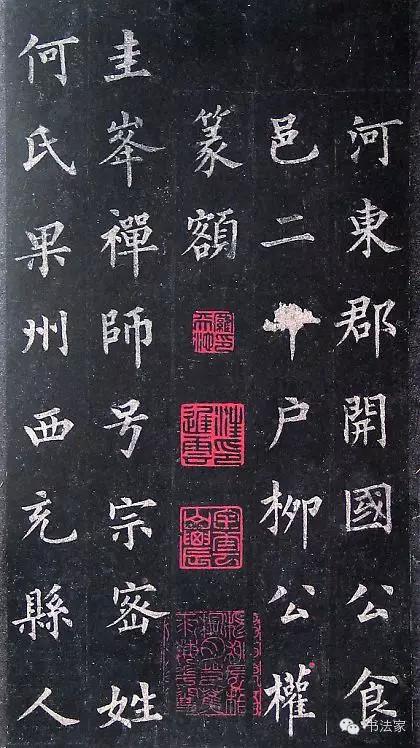 河東郡開國公食
邑二千户柳公權
篆額
圭峯禪師号宗密姓
何氏果州西充縣人
书法家